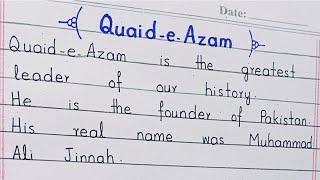 Date:
Quaid-e-Azam
Quaid-e-Azam is the greatest
leader of our history.
He is the founder of Pakistan.
His real name was Muhammad
Ali Jinnah.